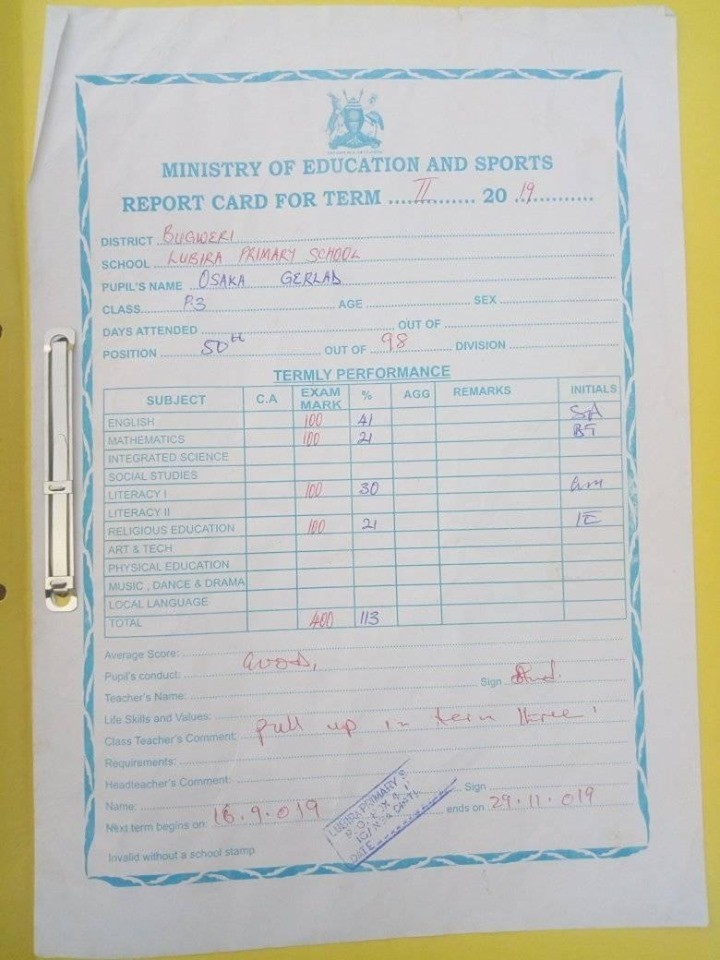 MINISTRY OF EDUCATION AND SPORTS
REPORT CARD FOR TERM ....II.......... 20 .19............
DISTRICT BUGWERI
SCHOOL LUBIRA PRIMARY SCHOOL
PUPIL'S NAME OSAKA GERLAD
CLASS P.3 AGE SEX
DAYS ATTENDED OUT OF
POSITION 50th OUT OF 98 DIVISION
TERMLY PERFORMANCE
SUBJECT C.A EXAM MARK % AGG REMARKS INITIALS
ENGLISH 100 41 SA
MATHEMATICS 100 21 BT
INTEGRATED SCIENCE
SOCIAL STUDIES
LITERACY I 100 30
LITERACY II
RELIGIOUS EDUCATION 100 21 IE
ART & TECH
PHYSICAL EDUCATION
MUSIC , DANCE & DRAMA
LOCAL LANGUAGE
TOTAL 400 113
Average Score:
Pupil's conduct: Good, Sign
Teacher's Name:
Life Skills and Values:
Class Teacher's Comment: pull up in term three!
Requirements:
Headteacher's Comment:
Name: Sign
Next term begins on 16.9.019 ends on 29.11.019
LUBIRA PRIMARY S
P.O. BOX
DATE
Invalid without a school stamp